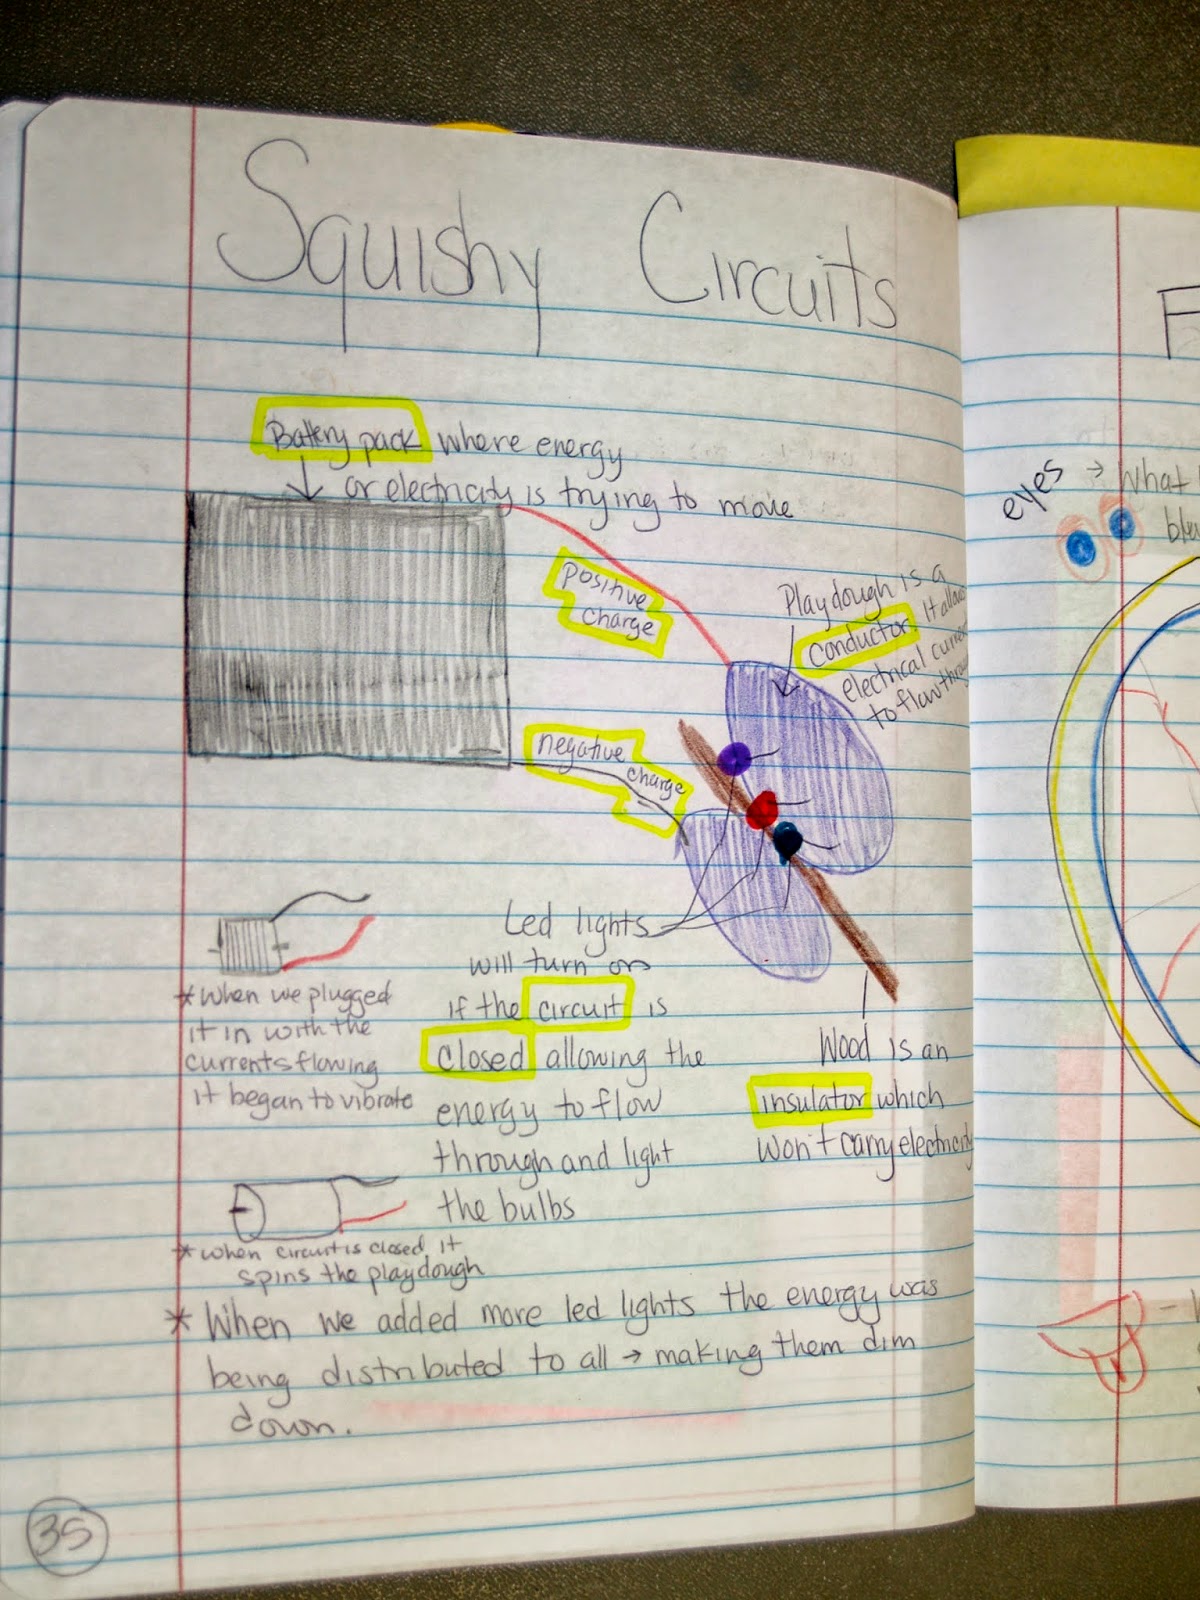 Squishy Circuits
Battery pack where energy
or electricity is trying to move
positive
charge
Playdough is a
conductor. It allows
electrical current
to flow through
negative
charge
Led lights
will turn on
if the circuit is
closed allowing the
energy to flow
through and light
the bulbs
Wood is an
insulator which
won't carry electricity
* When we plugged
it in with the
currents flowing
it began to vibrate
* When circuit is closed it
spins the playdough
* When we added more led lights the energy was
being distributed to all → making them dim
down.
35
F
eyes → What